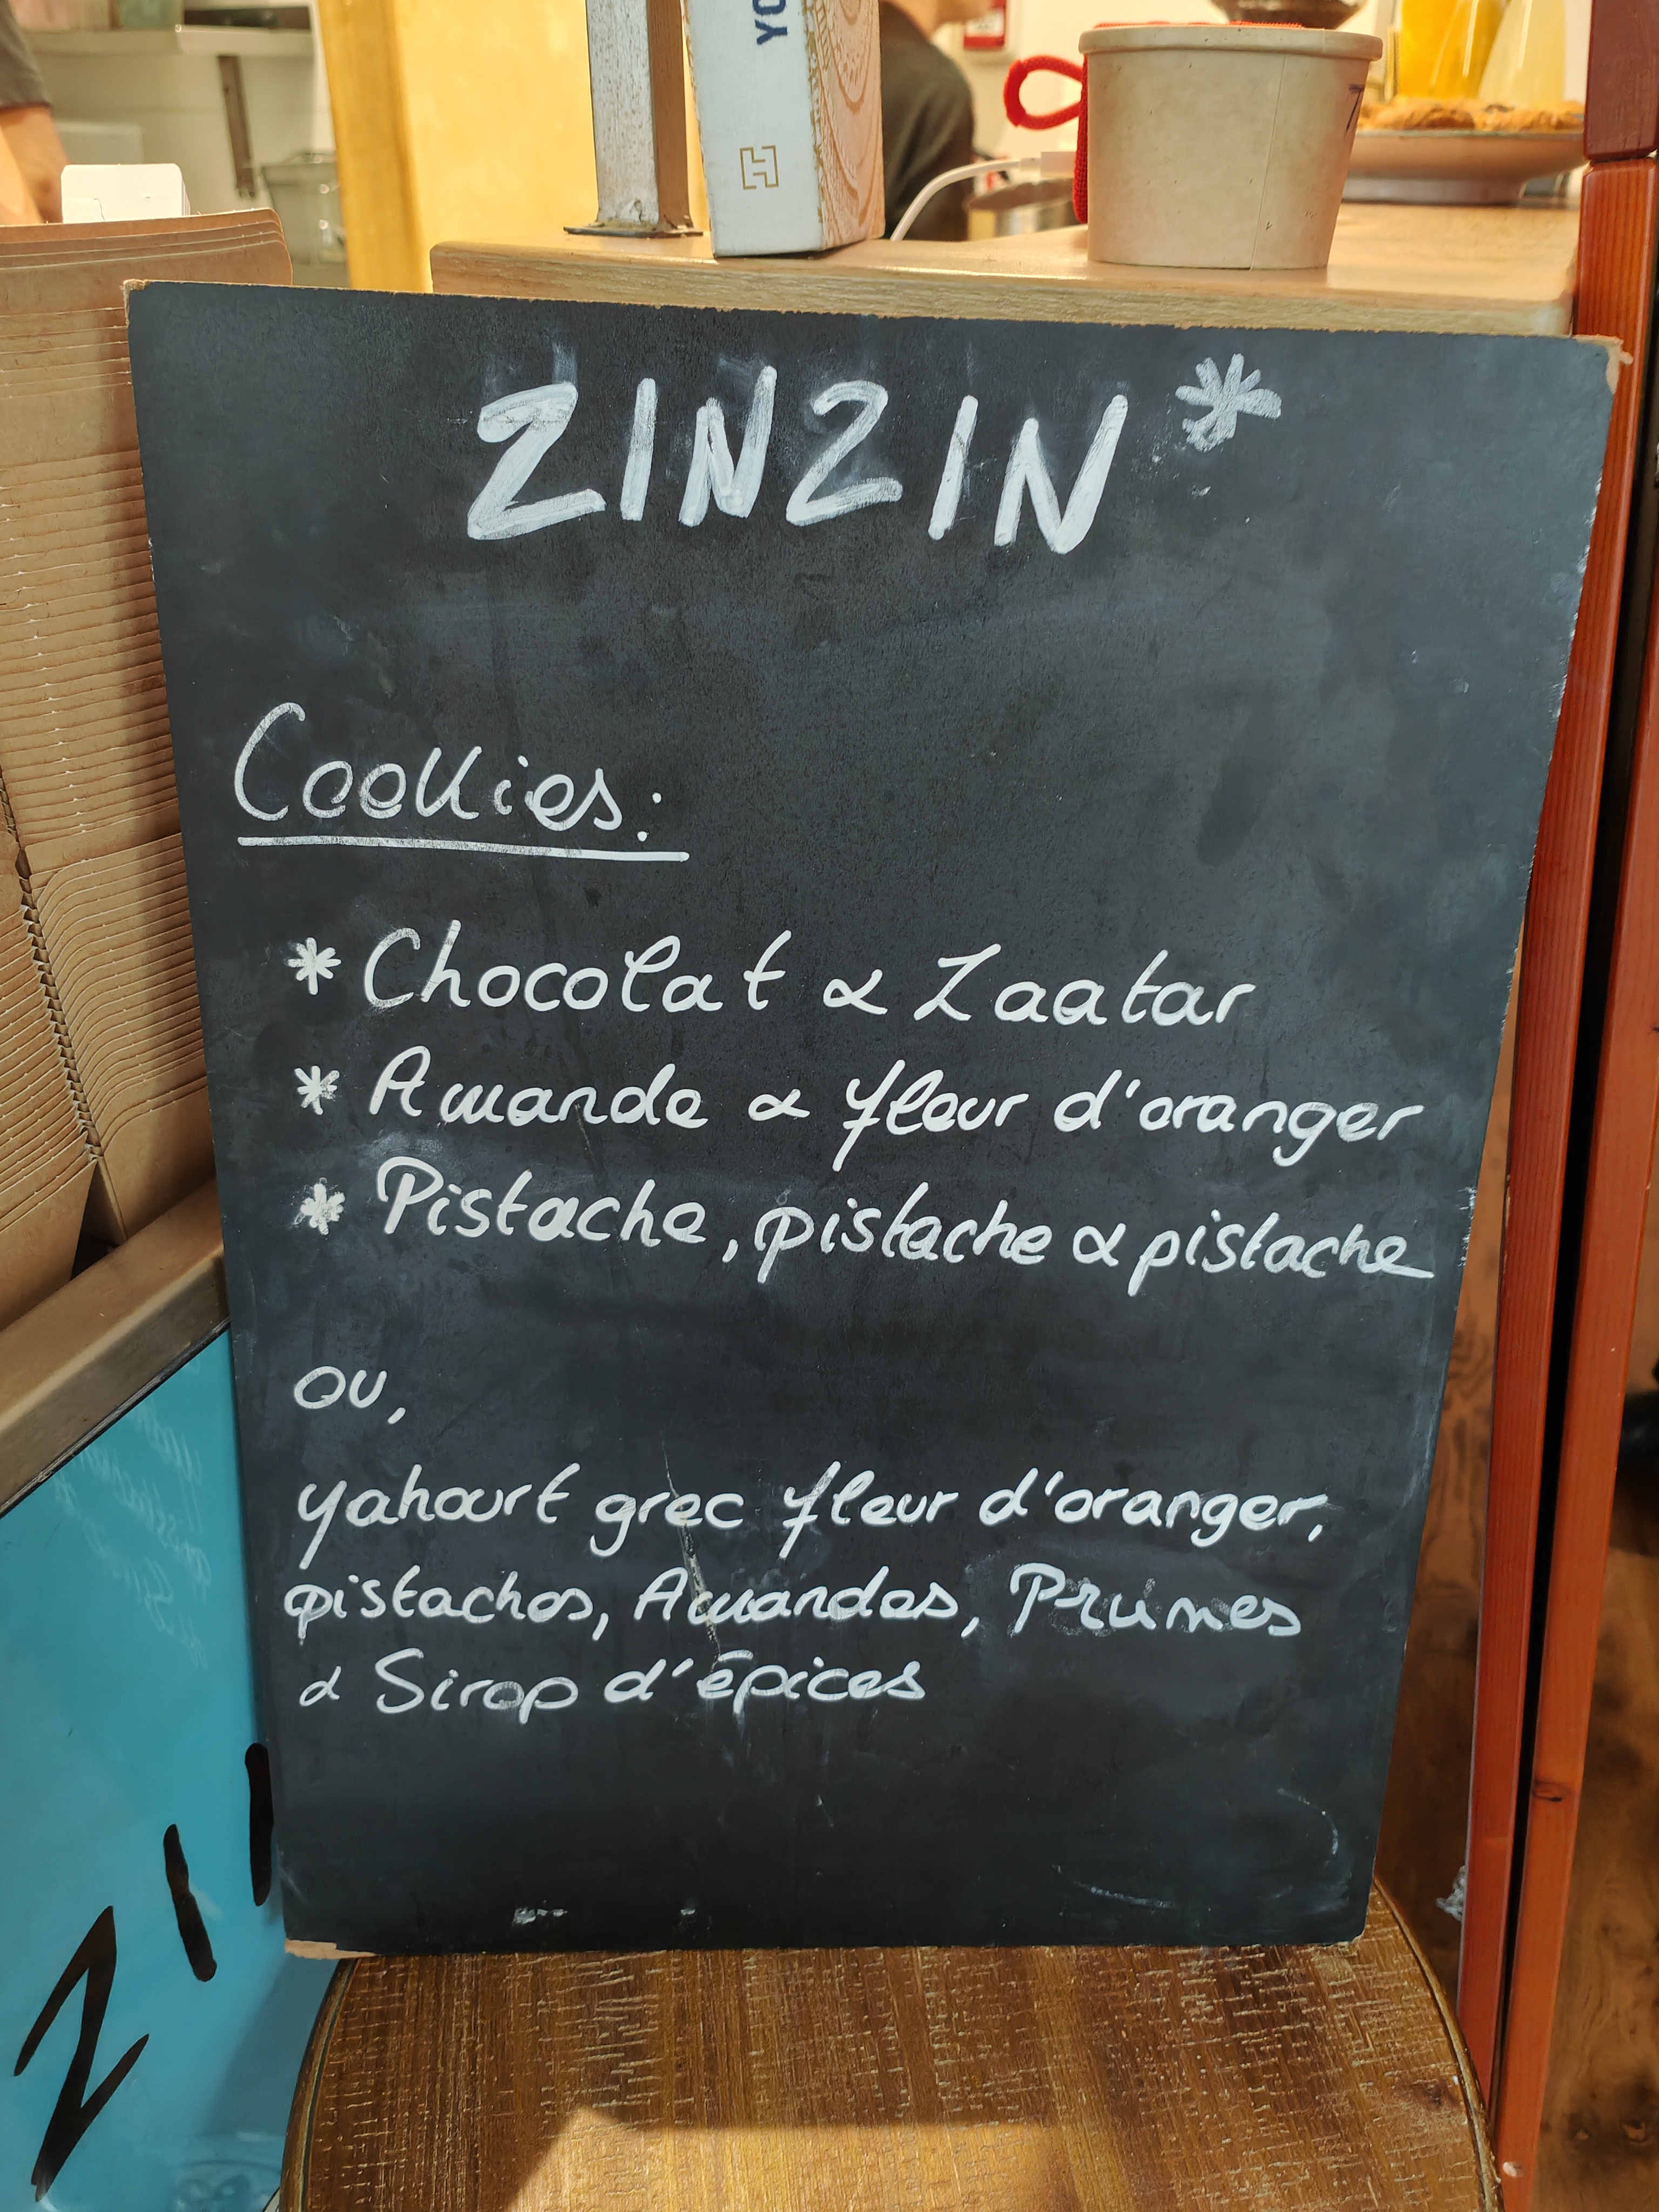 YO
H
ZINZIN*
Cookies:
* Chocolat & Zaatar
* Amande & fleur d'oranger
* Pistache, pistache & pistache
ou,
yahourt grec fleur d'oranger,
pistaches, Amandes, Prunes
& Sirop d'épices
ZI